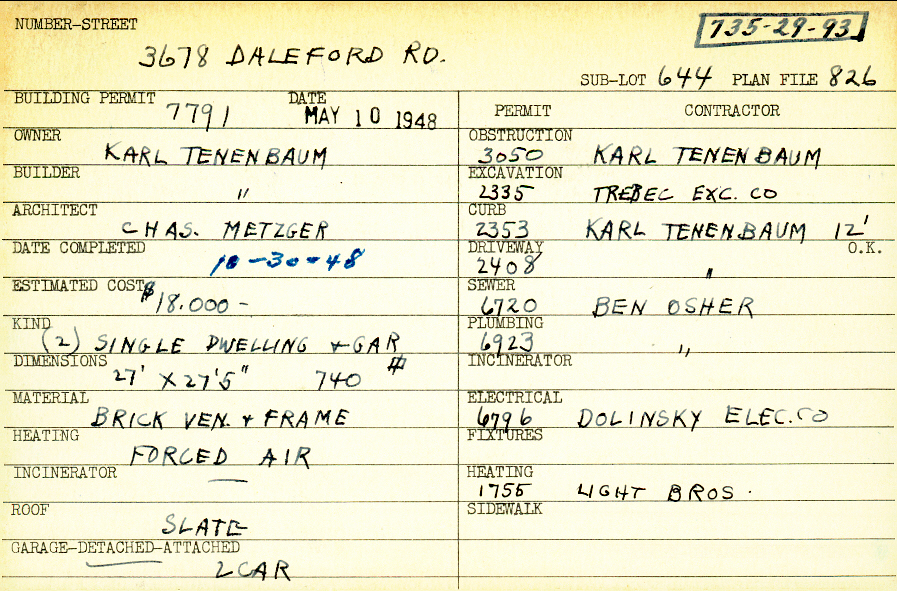 NUMBER-STREET
735-29-93
3678 DALEFORD RD.
SUB-LOT 644 PLAN FILE 826
BUILDING PERMIT 7791 DATE MAY 10 1948
OWNER KARL TENENBAUM
BUILDER "
ARCHITECT CHAS. METZGER
DATE COMPLETED 10-30-48
ESTIMATED COST $18.000-
KIND (2) SINGLE DWELLING + GAR
DIMENSIONS 27' X 27'5" 740 #
MATERIAL BRICK VEN. + FRAME
HEATING FORCED AIR
INCINERATOR —
ROOF SLATE
GARAGE-DETACHED-ATTACHED 2 CAR
PERMIT CONTRACTOR
OBSTRUCTION 3050 KARL TENENBAUM
EXCAVATION 2335 TREBEC EXC. CO
CURB 2353 KARL TENENBAUM 12'
DRIVEWAY 2408 " O.K.
SEWER 6720 BEN OSHER
PLUMBING 6923 "
INCINERATOR
ELECTRICAL 6796 DOLINSKY ELEC. CO
FIXTURES
HEATING 1755 LIGHT BROS.
SIDEWALK